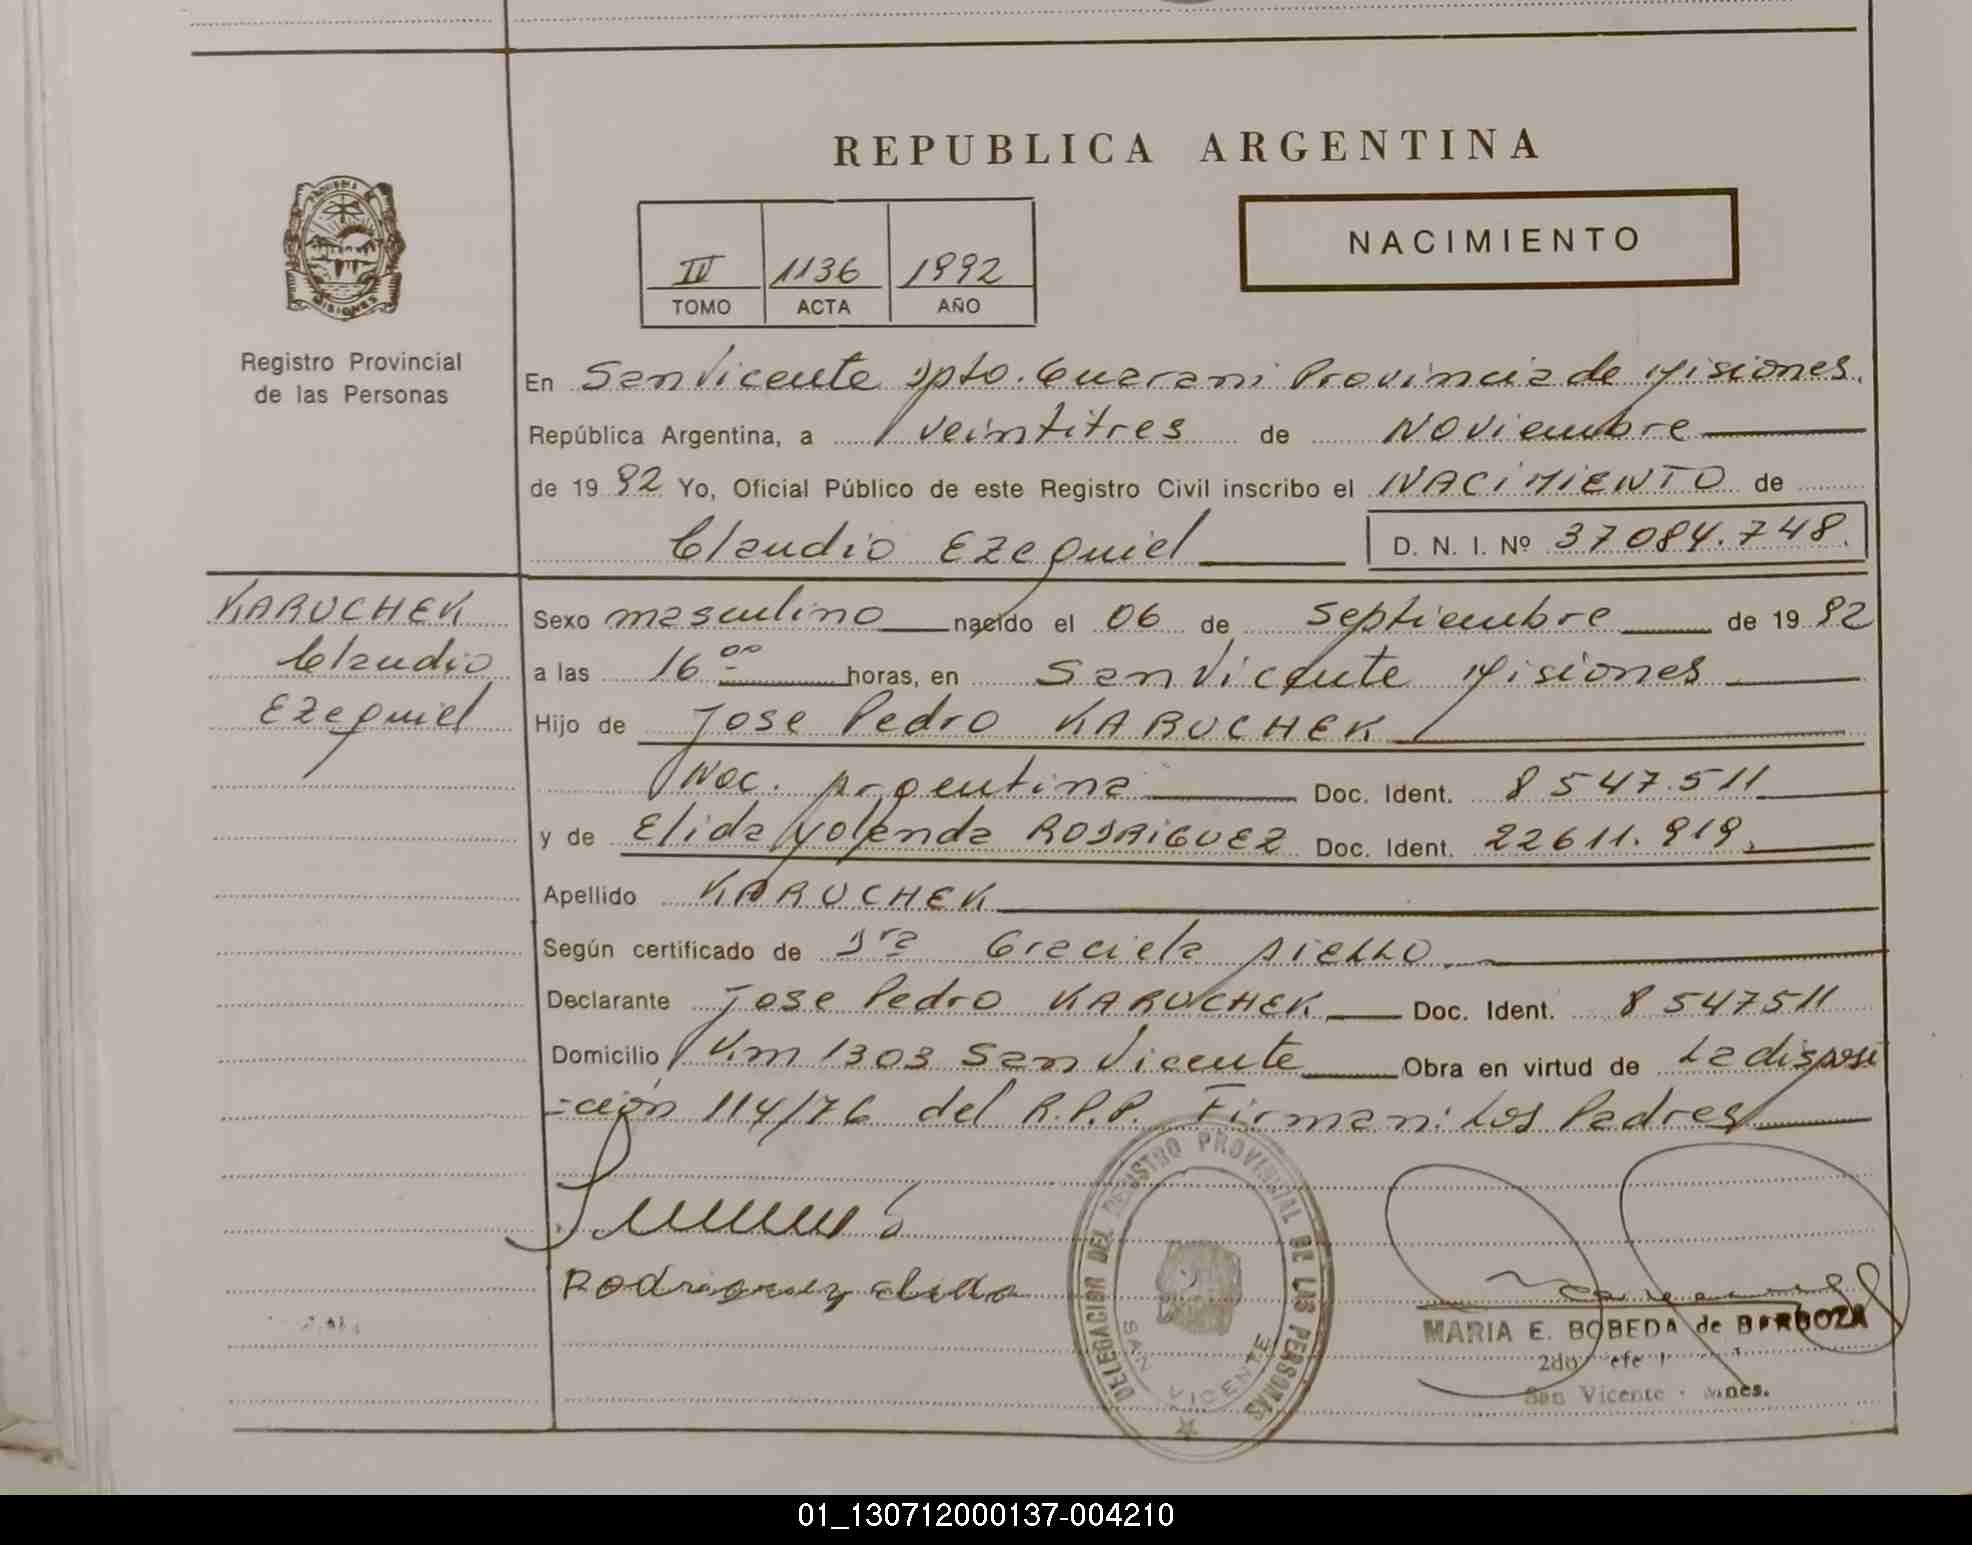 REPUBLICA ARGENTINA
NACIMIENTO
III 1136 1992
TOMO ACTA AÑO
MISIONES
Registro Provincial
de las Personas
En San Vicente Dpto. Guarani Provincia de Misiones.
República Argentina, a veintitres de Noviembre
de 1992 Yo, Oficial Público de este Registro Civil inscribo el NACIMIENTO de
Claudio Ezequiel D. N. I. Nº 37084.748.
KARUCHEK
Claudio
Ezequiel
Sexo masculino nacido el 06 de Septiembre de 1992
a las 16 00 horas, en San Vicente Misiones
Hijo de Jose Pedro KARUCHEK
Nac. Argentina Doc. Ident. 8547.511
y de Elida Yolanda RODRIGUEZ Doc. Ident. 22611.919.
Apellido KARUCHEK
Según certificado de Dra Graciela AIELLO
Declarante Jose Pedro KARUCHEK Doc. Ident. 8547511
Domicilio Km 1303 San Vicente Obra en virtud de La disposi
=ción 114/76 del R.P.P. Firman: Los Padres
Rodriguez elida
DELEGACION DEL REGISTRO PROVINCIAL DE LAS PERSONAS
SAN VICENTE
MARIA E. BOBEDA de BARBOZA
2do Jefe
San Vicente - Mnes.
01_130712000137-004210